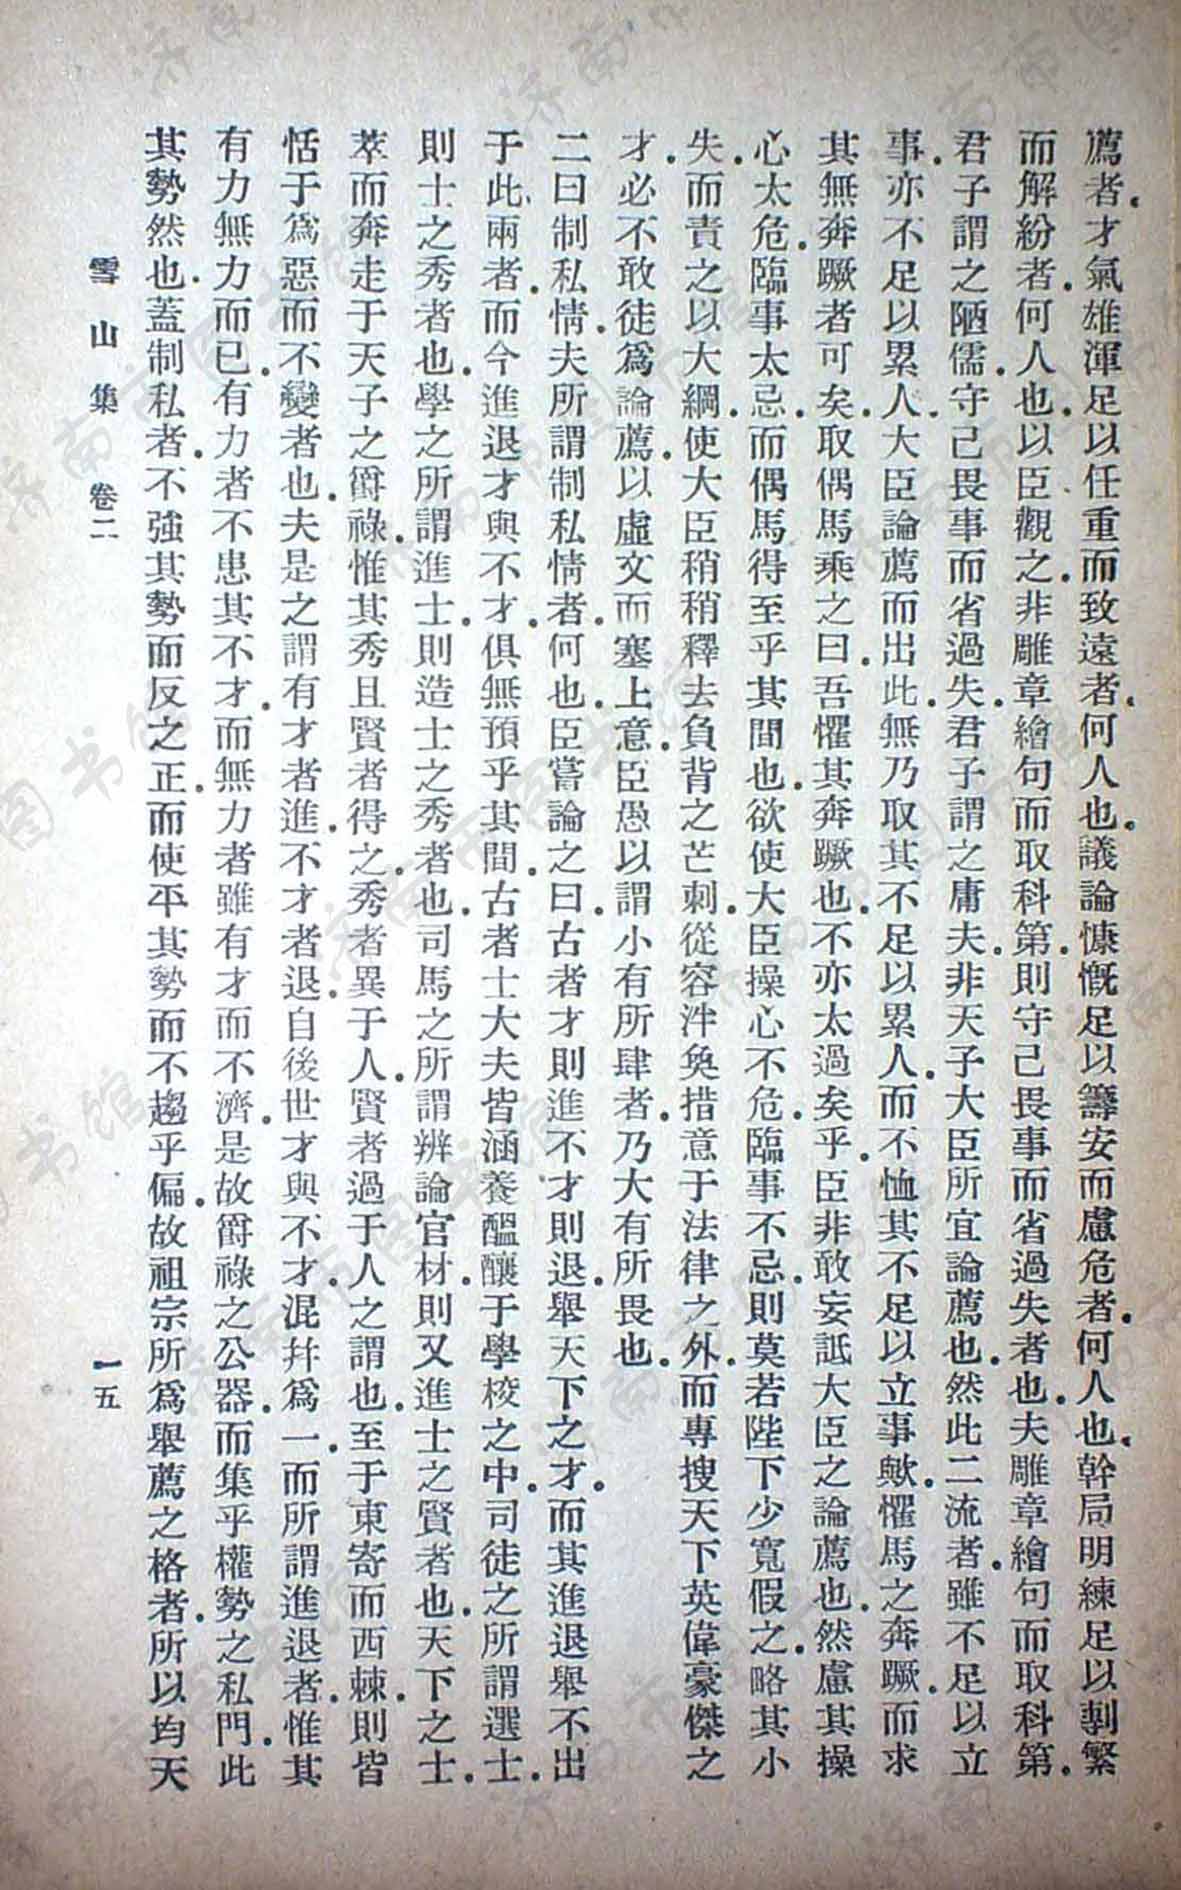 薦者.才氣雄渾足以任重而致遠者.何人也.議論慷慨足以籌安而慮危者.何人也.幹局明練足以剸繁
而解紛者.何人也.以臣觀之.非雕章繪句而取科第.則守己畏事而省過失者也.夫雕章繪句而取科第.
君子謂之陋儒.守己畏事而省過失.君子謂之庸夫.非天子大臣所宜論薦也.然此二流者.雖不足以立
事.亦不足以累人.大臣論薦而出此.無乃取其不足以累人.而不恤其不足以立事歟.懼馬之奔蹶.而求
其無奔蹶者可矣.取偶馬乘之曰.吾懼其奔蹶也.不亦太過矣乎.臣非敢妄詆大臣之論薦也.然慮其操
心太危.臨事太忌.而偶馬得至乎其間也.欲使大臣操心不危.臨事不忌.則莫若陛下少寬假之.略其小
失.而責之以大綱.使大臣稍稍釋去負背之芒刺.從容泮奐措意于法律之外.而專搜天下英偉豪傑之
才.必不敢徒爲論薦.以虛文而塞上意.臣愚以謂小有所肆者.乃大有所畏也.
二曰制私情.夫所謂制私情者.何也.臣嘗論之曰.古者才則進不才則退.舉天下之才.而其進退舉不出
于此兩者.而今進退才與不才.俱無預乎其間.古者士大夫皆涵養醞釀于學校之中.司徒之所謂選士.
則士之秀者也.學之所謂進士.則造士之秀者也.司馬之所謂辨論官材.則又進士之賢者也.天下之士.
萃而奔走于天子之爵祿.惟其秀且賢者得之.秀者異于人.賢者過于人之謂也.至于東寄而西棘.則皆
恬于爲惡而不變者也.夫是之謂有才者進.不才者退.自後世才與不才.混幷爲一.而所謂進退者.惟其
有力無力而已.有力者不患其不才.而無力者雖有才而不濟.是故爵祿之公器.而集乎權勢之私門.此
其勢然也.蓋制私者.不強其勢而反之正.而使平其勢而不趨乎偏.故祖宗所爲舉薦之格者.所以均天
雪山集 卷二 一五